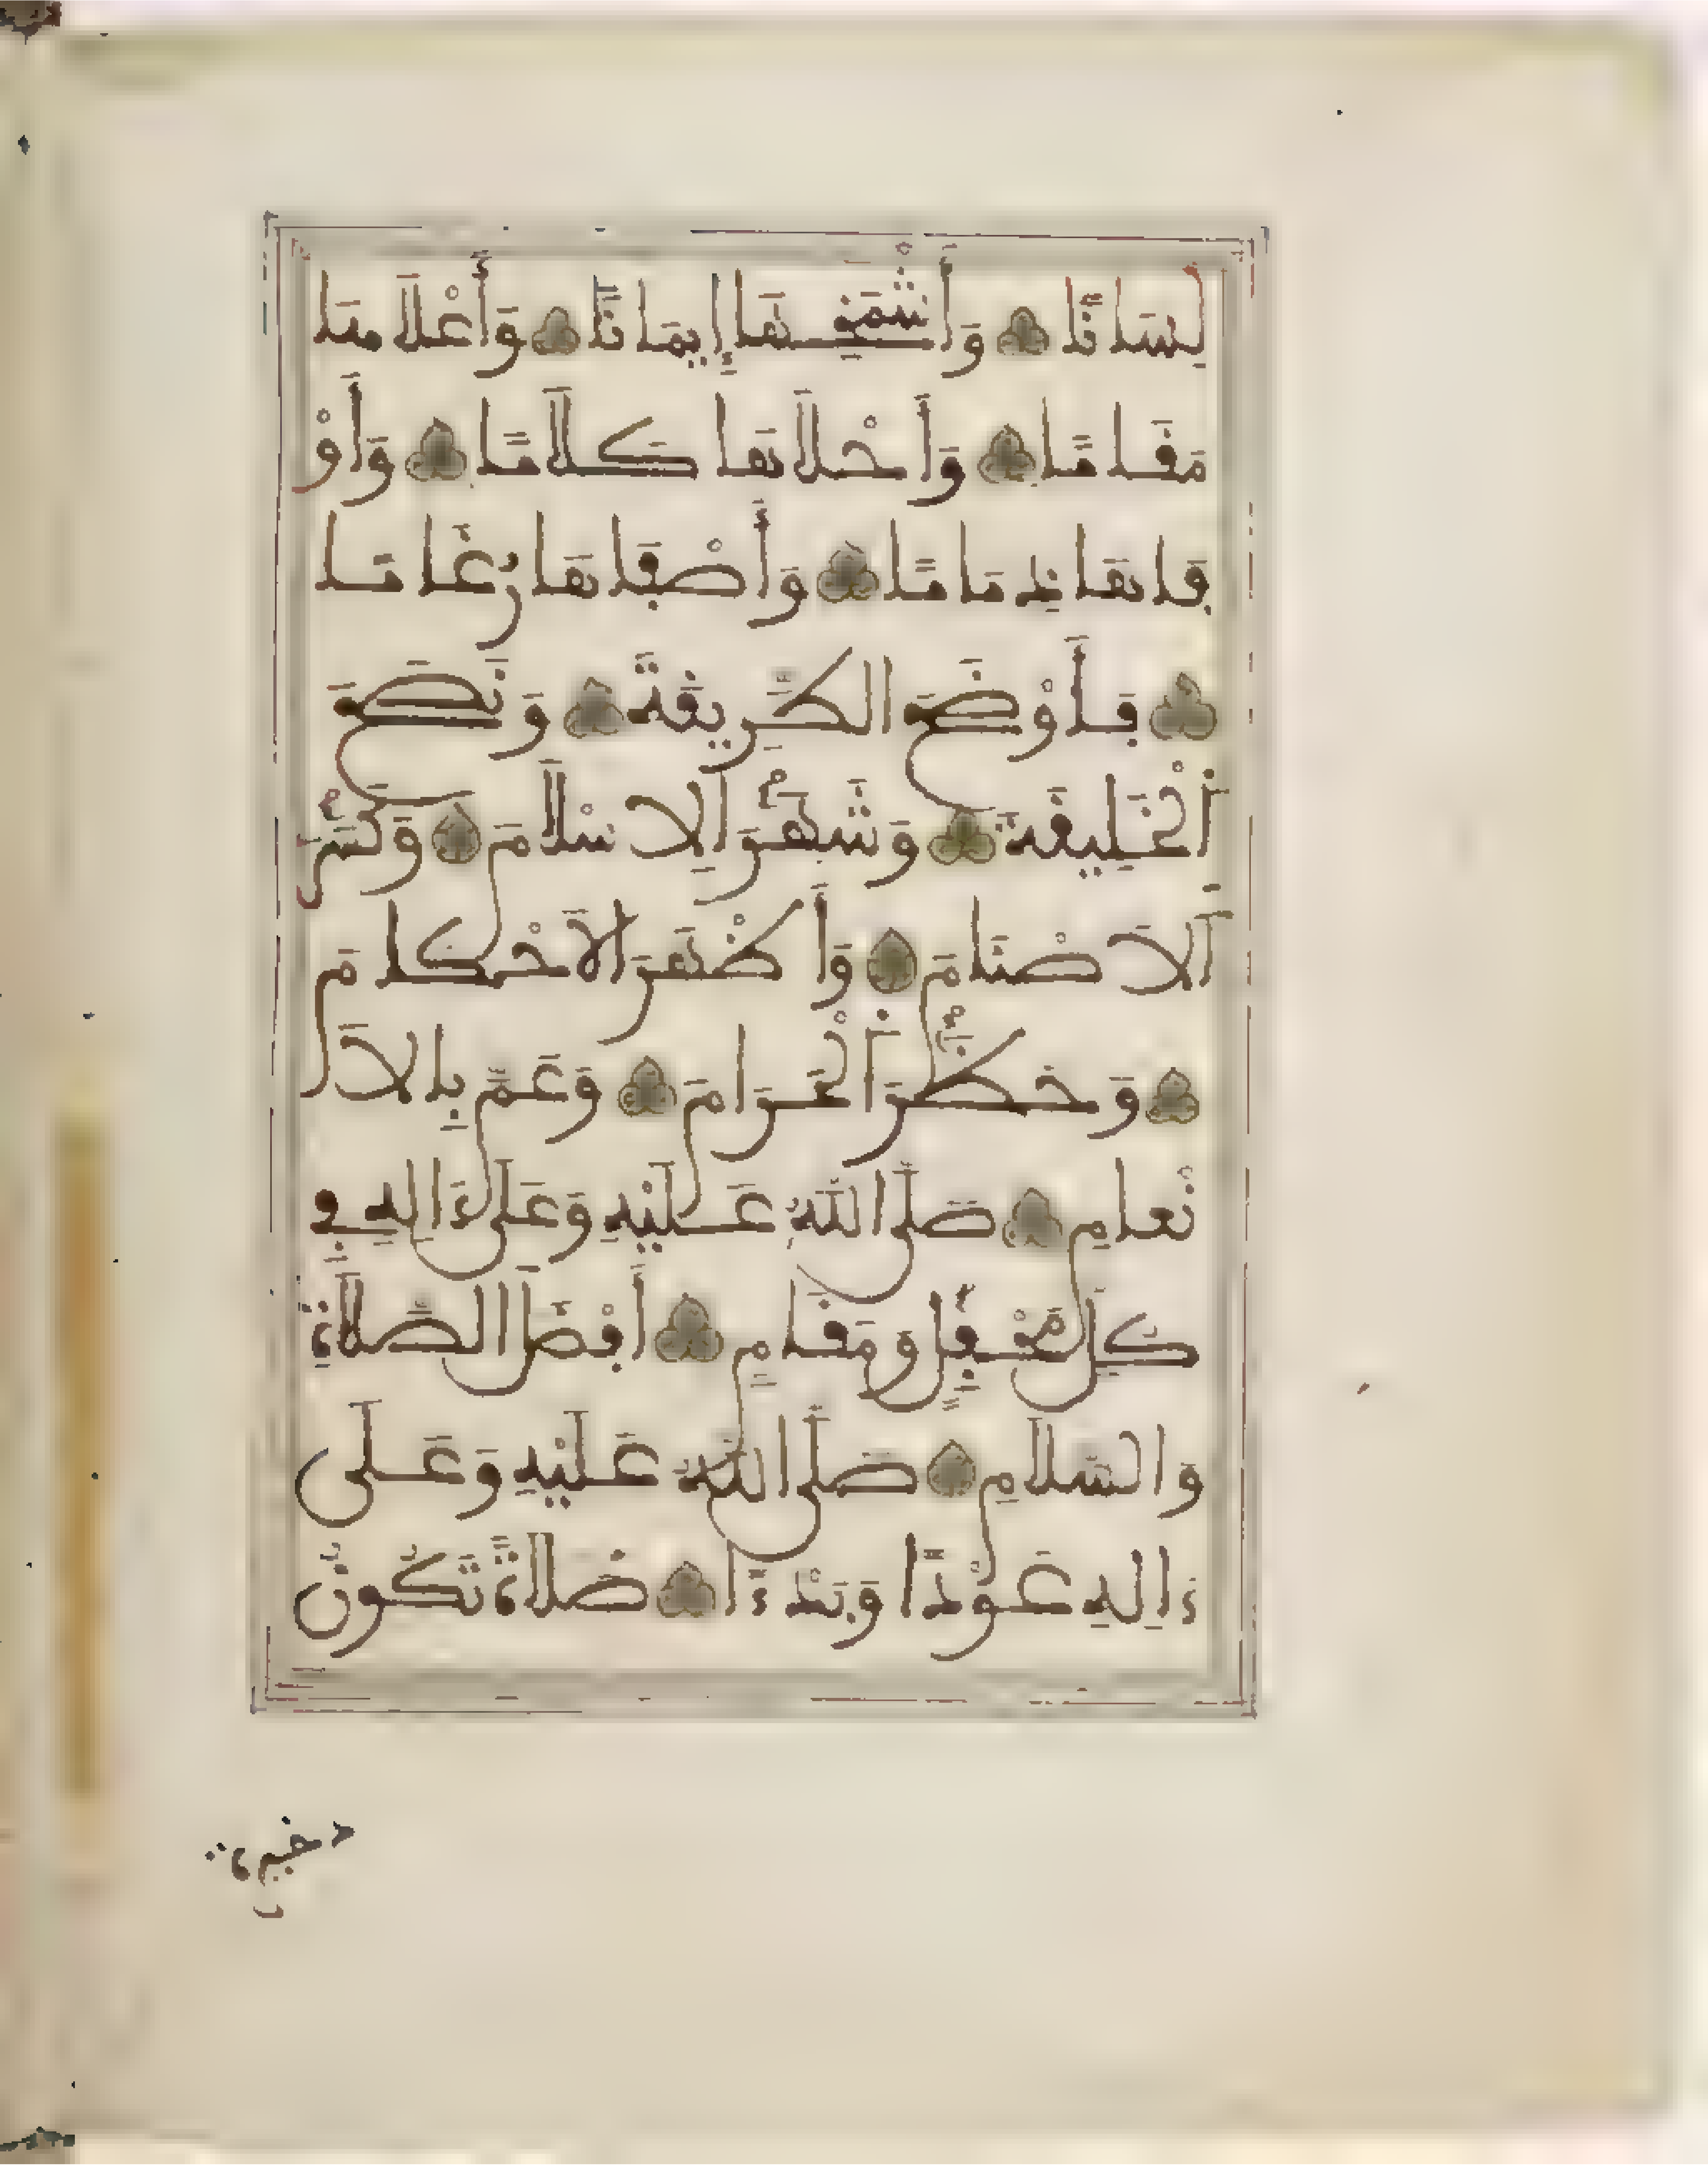 لِسَانًا وَأَشْمَخِهَا إِيمَانًا وَأَعْلَاهَا
مَقَامًا وَأَحْلَاهَا كَلَامًا وَأَوْ
فَاهَا ذِمَامًا وَأَصْفَاهَا رُغَامًا
فَأَوْضَحَ الطَّرِيقَةَ وَنَصَحَ
اَلْخَلِيقَةَ وَشَهَّرَ الاِسْلَامَ وَكَسَّرَ
اَلَاصْنَامَ وَأَظْهَرَ الَاحْكَامَ
وَحَظَّرَ اَلْحَرَامَ وَعَمَّ بِالِا
نْعَامِ صَلَّى اللَّهُ عَلَيْهِ وَعَلَى ءَالِهِ فِي
كُلِّ مَحْفِلٍ وَمَقَامٍ أَفْضَلَ الصَّلَاةِ
وَالسَّلَامِ صَلَّى اللَّهُ عَلَيْهِ وَعَلَى
ءَالِهِ عَوْدًا وَبَدْءًا صَلَاةً تَكُونُ
ذخيرة